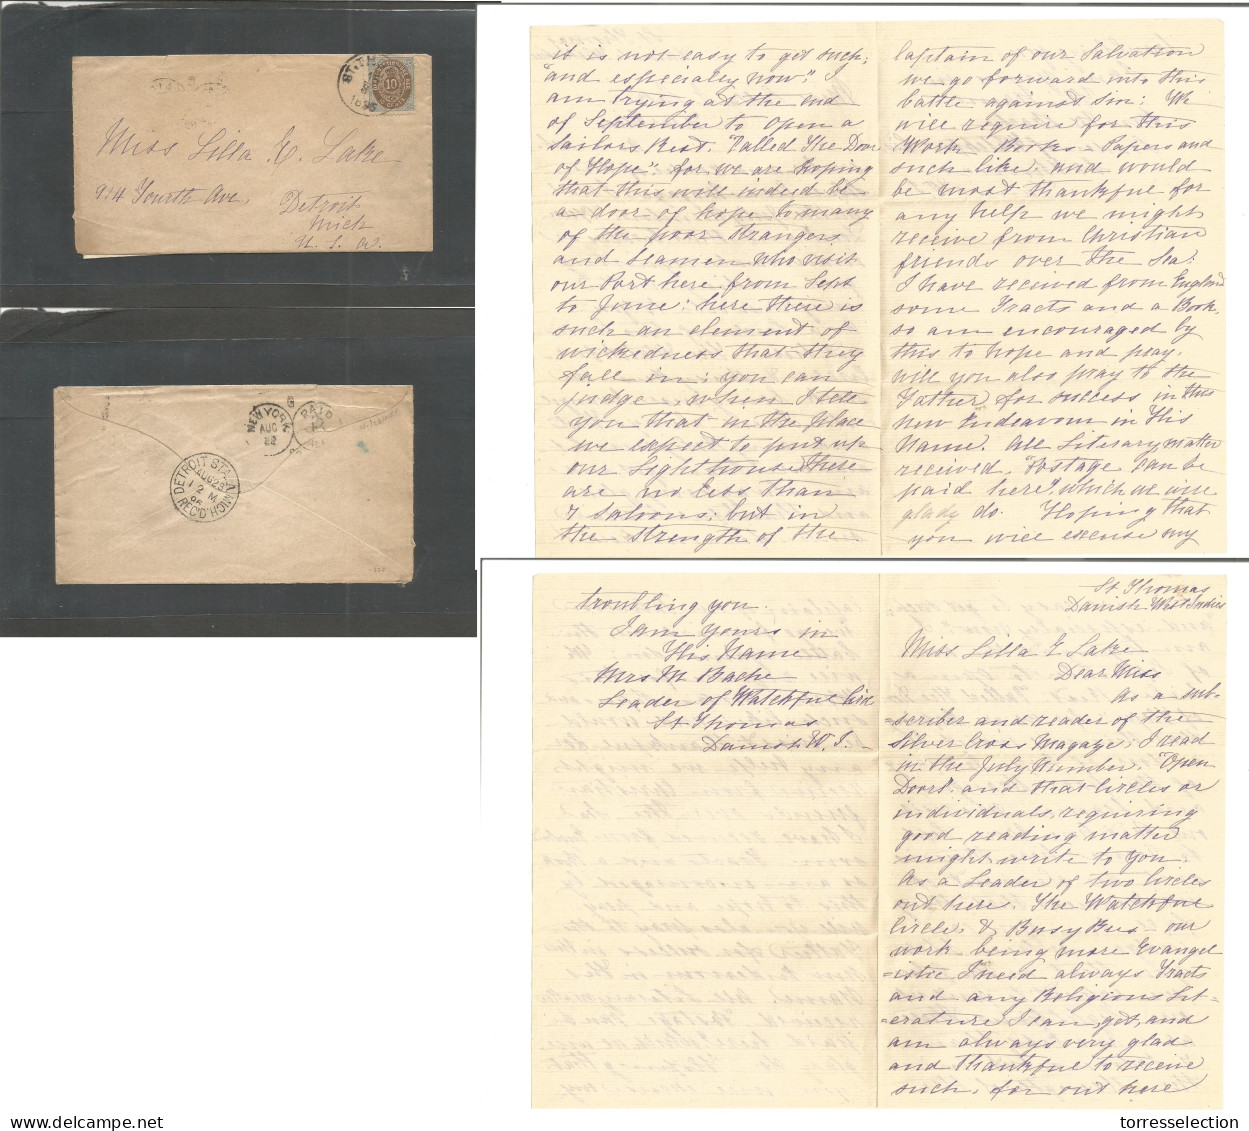 ST. TH
10
1895
Miss Lilla E. Lake
914 Fourth Ave.
Detroit
Mich
U. S. A.
NEW YORK
AUG
22
PAID
DETROIT STA.
AUG 23
12 M
95
REC'D
MICH.
it is not easy to get such;
"and especialey now". I
am trying at the end
of September to open a
Sailors Rest. "Called The Door
of Hope". for we are hoping
that this will indeed be
a door of hope to many
of the poor strangers
and Seamen who visit
our Port here from Sept
to June: here there is
such an element of
wickedness that they
fall in: you can
judge, when I tell
you that in the place
we expect to put up
our Lighthouse there
are no less than
7 saloons; but in
the strength of the
Captain of our Salvation
we go forward into this
battle against sin: We
will require for this
Work Books - Papers and
such like, and would
be most thankful for
any help we might
receive from Christian
friends over the Sea:
I have received from England
some Tracts and a Book,
so am encouraged by
this to hope and pray.
will you also pray to the
Father for success in this
new Endeavour in His
Name. All Literary matter
received, "Postage can be
paid here", which we will
glady do. Hoping that
you will excuse my
troubling you.
I am yours in
His Name
Mrs M Bache
Leader of Watchful Circle
St Thomas
Danish W. I.
St. Thomas
Danish West Indies
Miss Lilla E Lake
Dear Miss
As a sub-
=scriber and reader of the
Silver Cross Magaze, I read
in the July Number, "Open
Doors" and that Circles or
individuals, requiring
good reading matter
might write to you.
As a Leader of two Circles
out here. The Watchful
Circle, & Busy Bees - our
work being more Evangel
=istic I need always Tracts
and any Religious Lit=
=erature I can get, and
am always very glad
and thankful to receive
such, for out here
torresselection